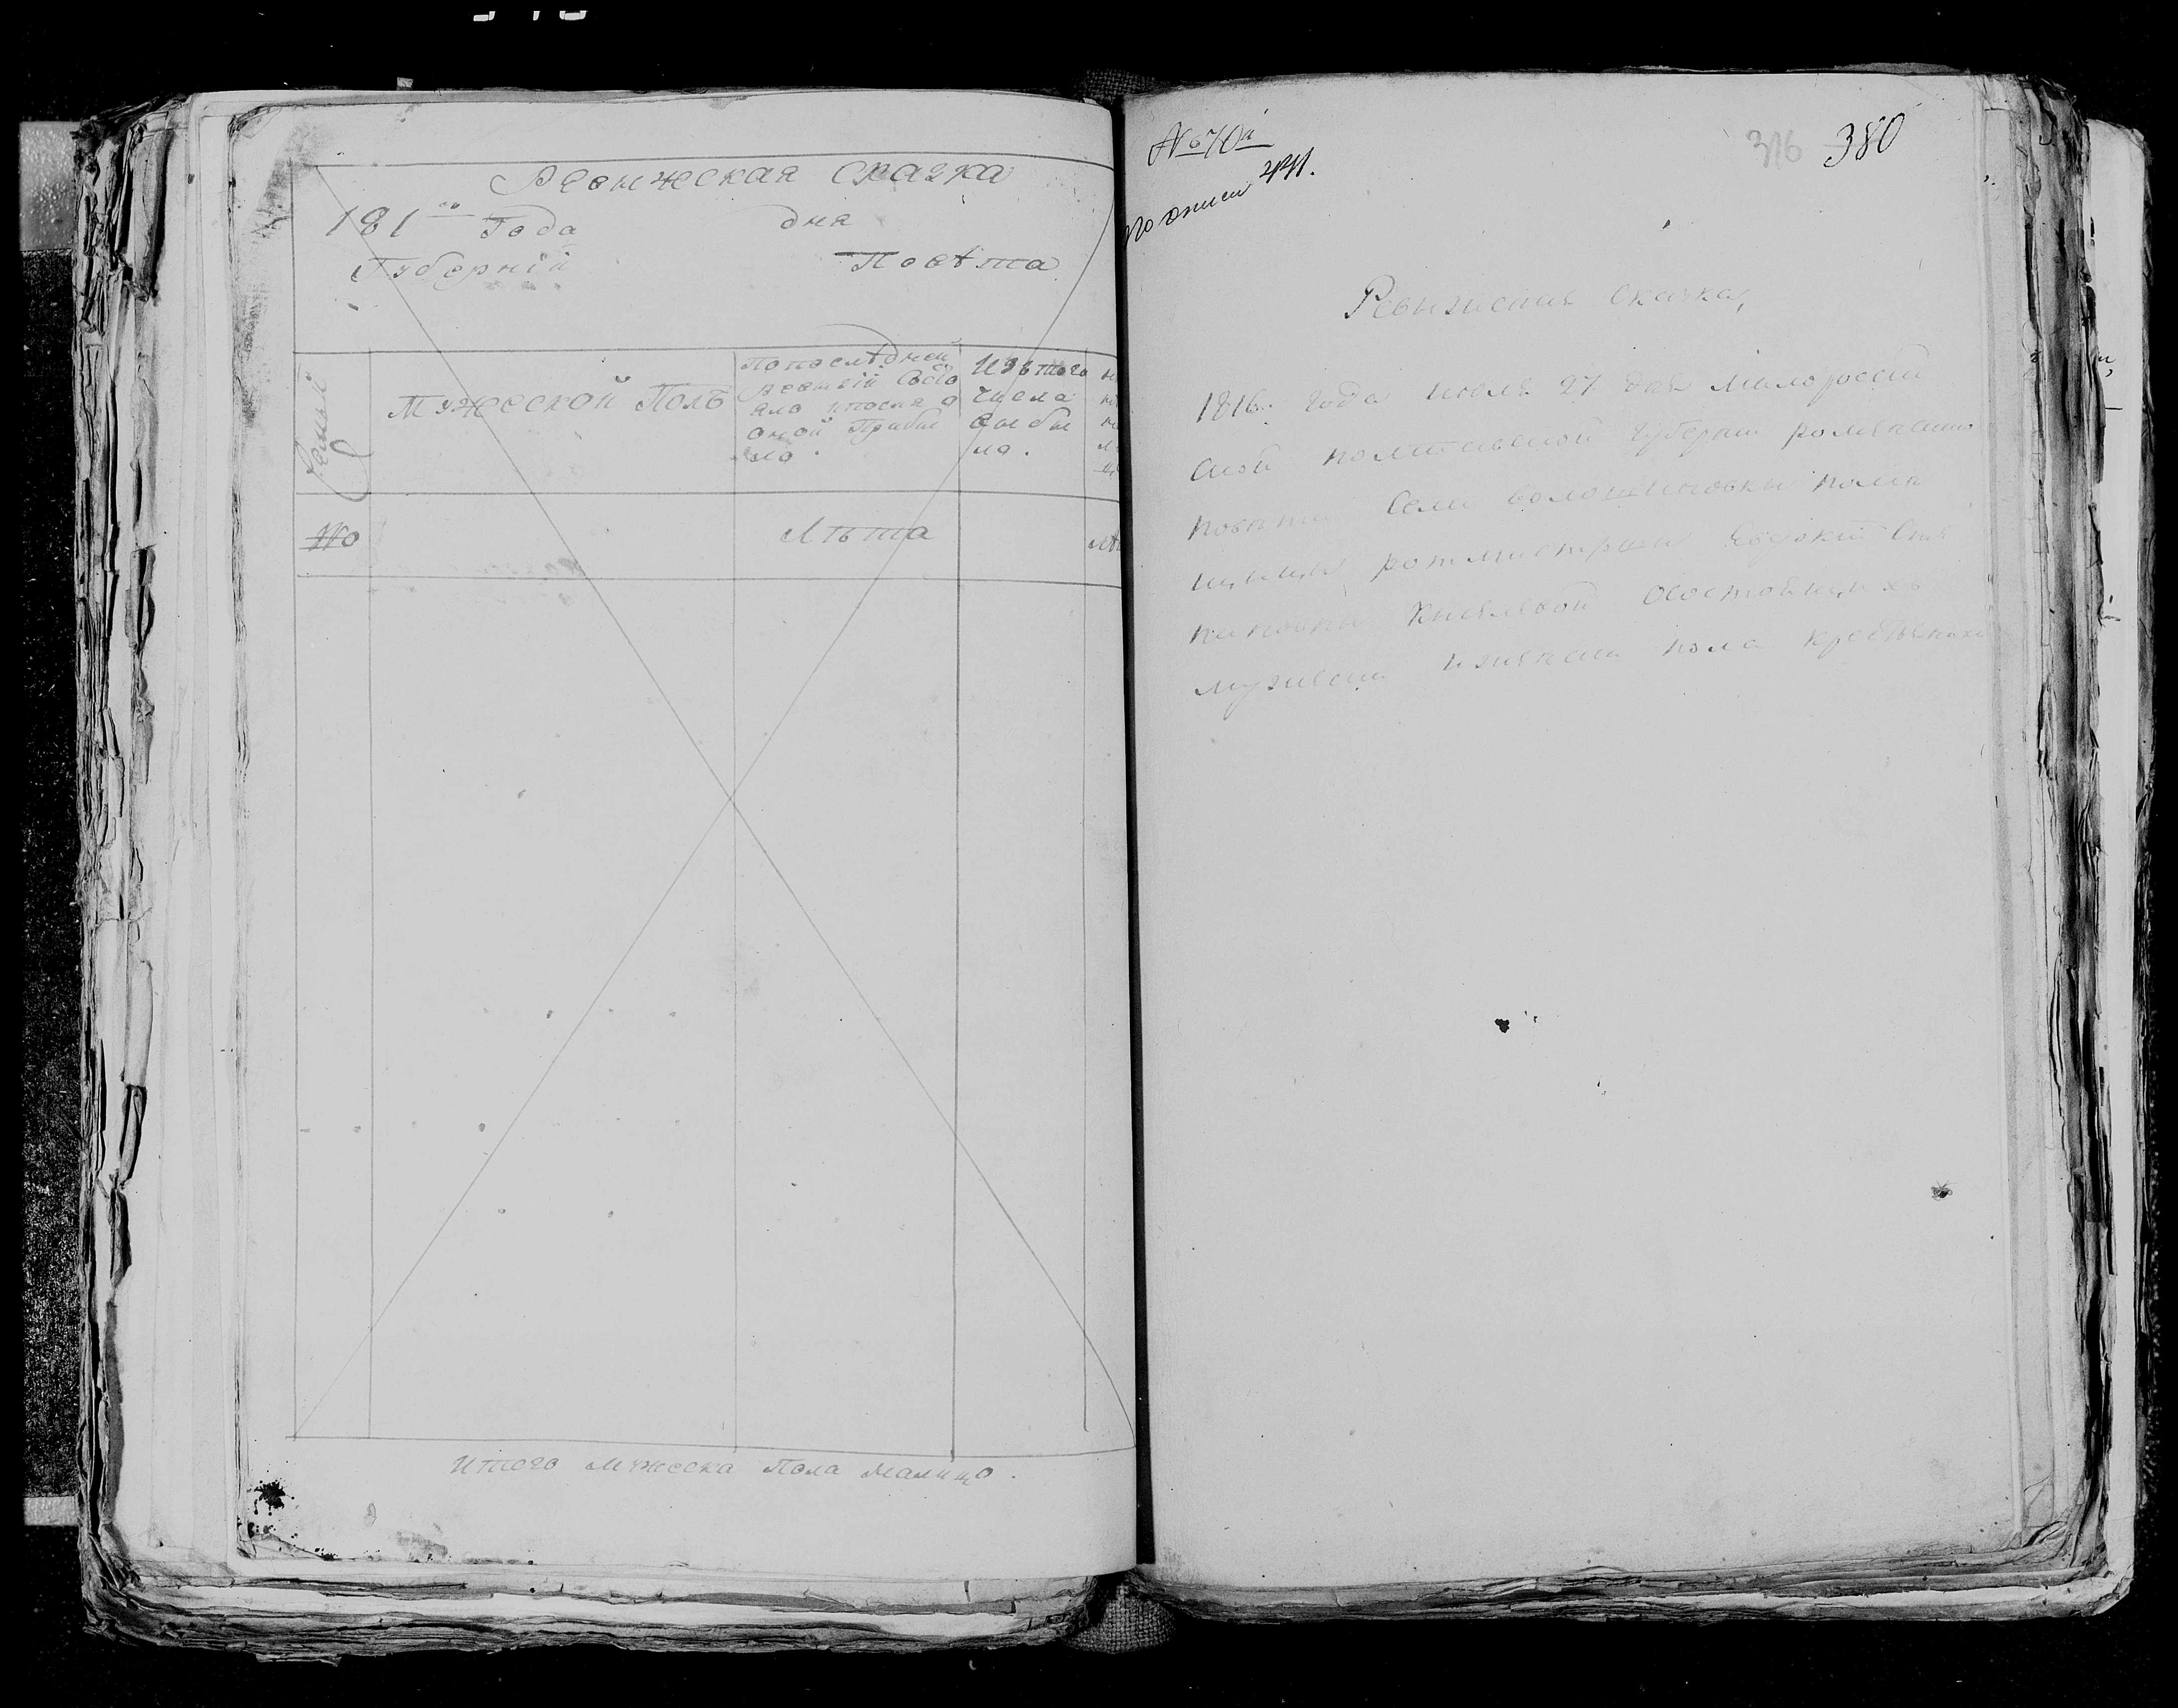 Ревижская сказка
181 го Года дня
Губерніи Повѣта
Семьи
Мужеской Полъ
по последней
ревизіи Состо
яло и после
оной Прибы
ло.
Изъ того
числа
выбы
ло.
№
Лѣта
Итого мужеска Пола налицо.
№ 70й
По описи 441.
316 380
Ревизская сказка,
1816. года июля 27 дня Малороссій
ской полтавской губерніи роменского
повѣта Села волошиновки помѣ
щицы ротмистрши
Киселевой осостоящихъ
мужеска иженска пола крестьянахъ